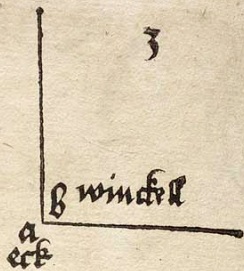 3
b winckell
a
eck